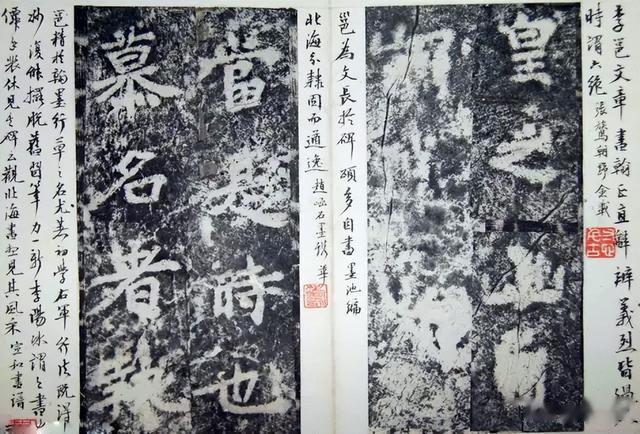 李邕文章書翰正直辭辯義烈皆過人
時謂六絕 張鷟朝野僉載
皇之
邕為文長於碑頌多自書 墨池編
北海分隸固而遒逸 趙崡石墨鐫華
當是時也
慕名者
邕精於翰墨行草之名尤著初學右軍行法既得
妙復乃擺脫舊習筆力一新李陽冰謂之書中
僊手裴休見其碑云觀北海書想見其風采 宣和書譜